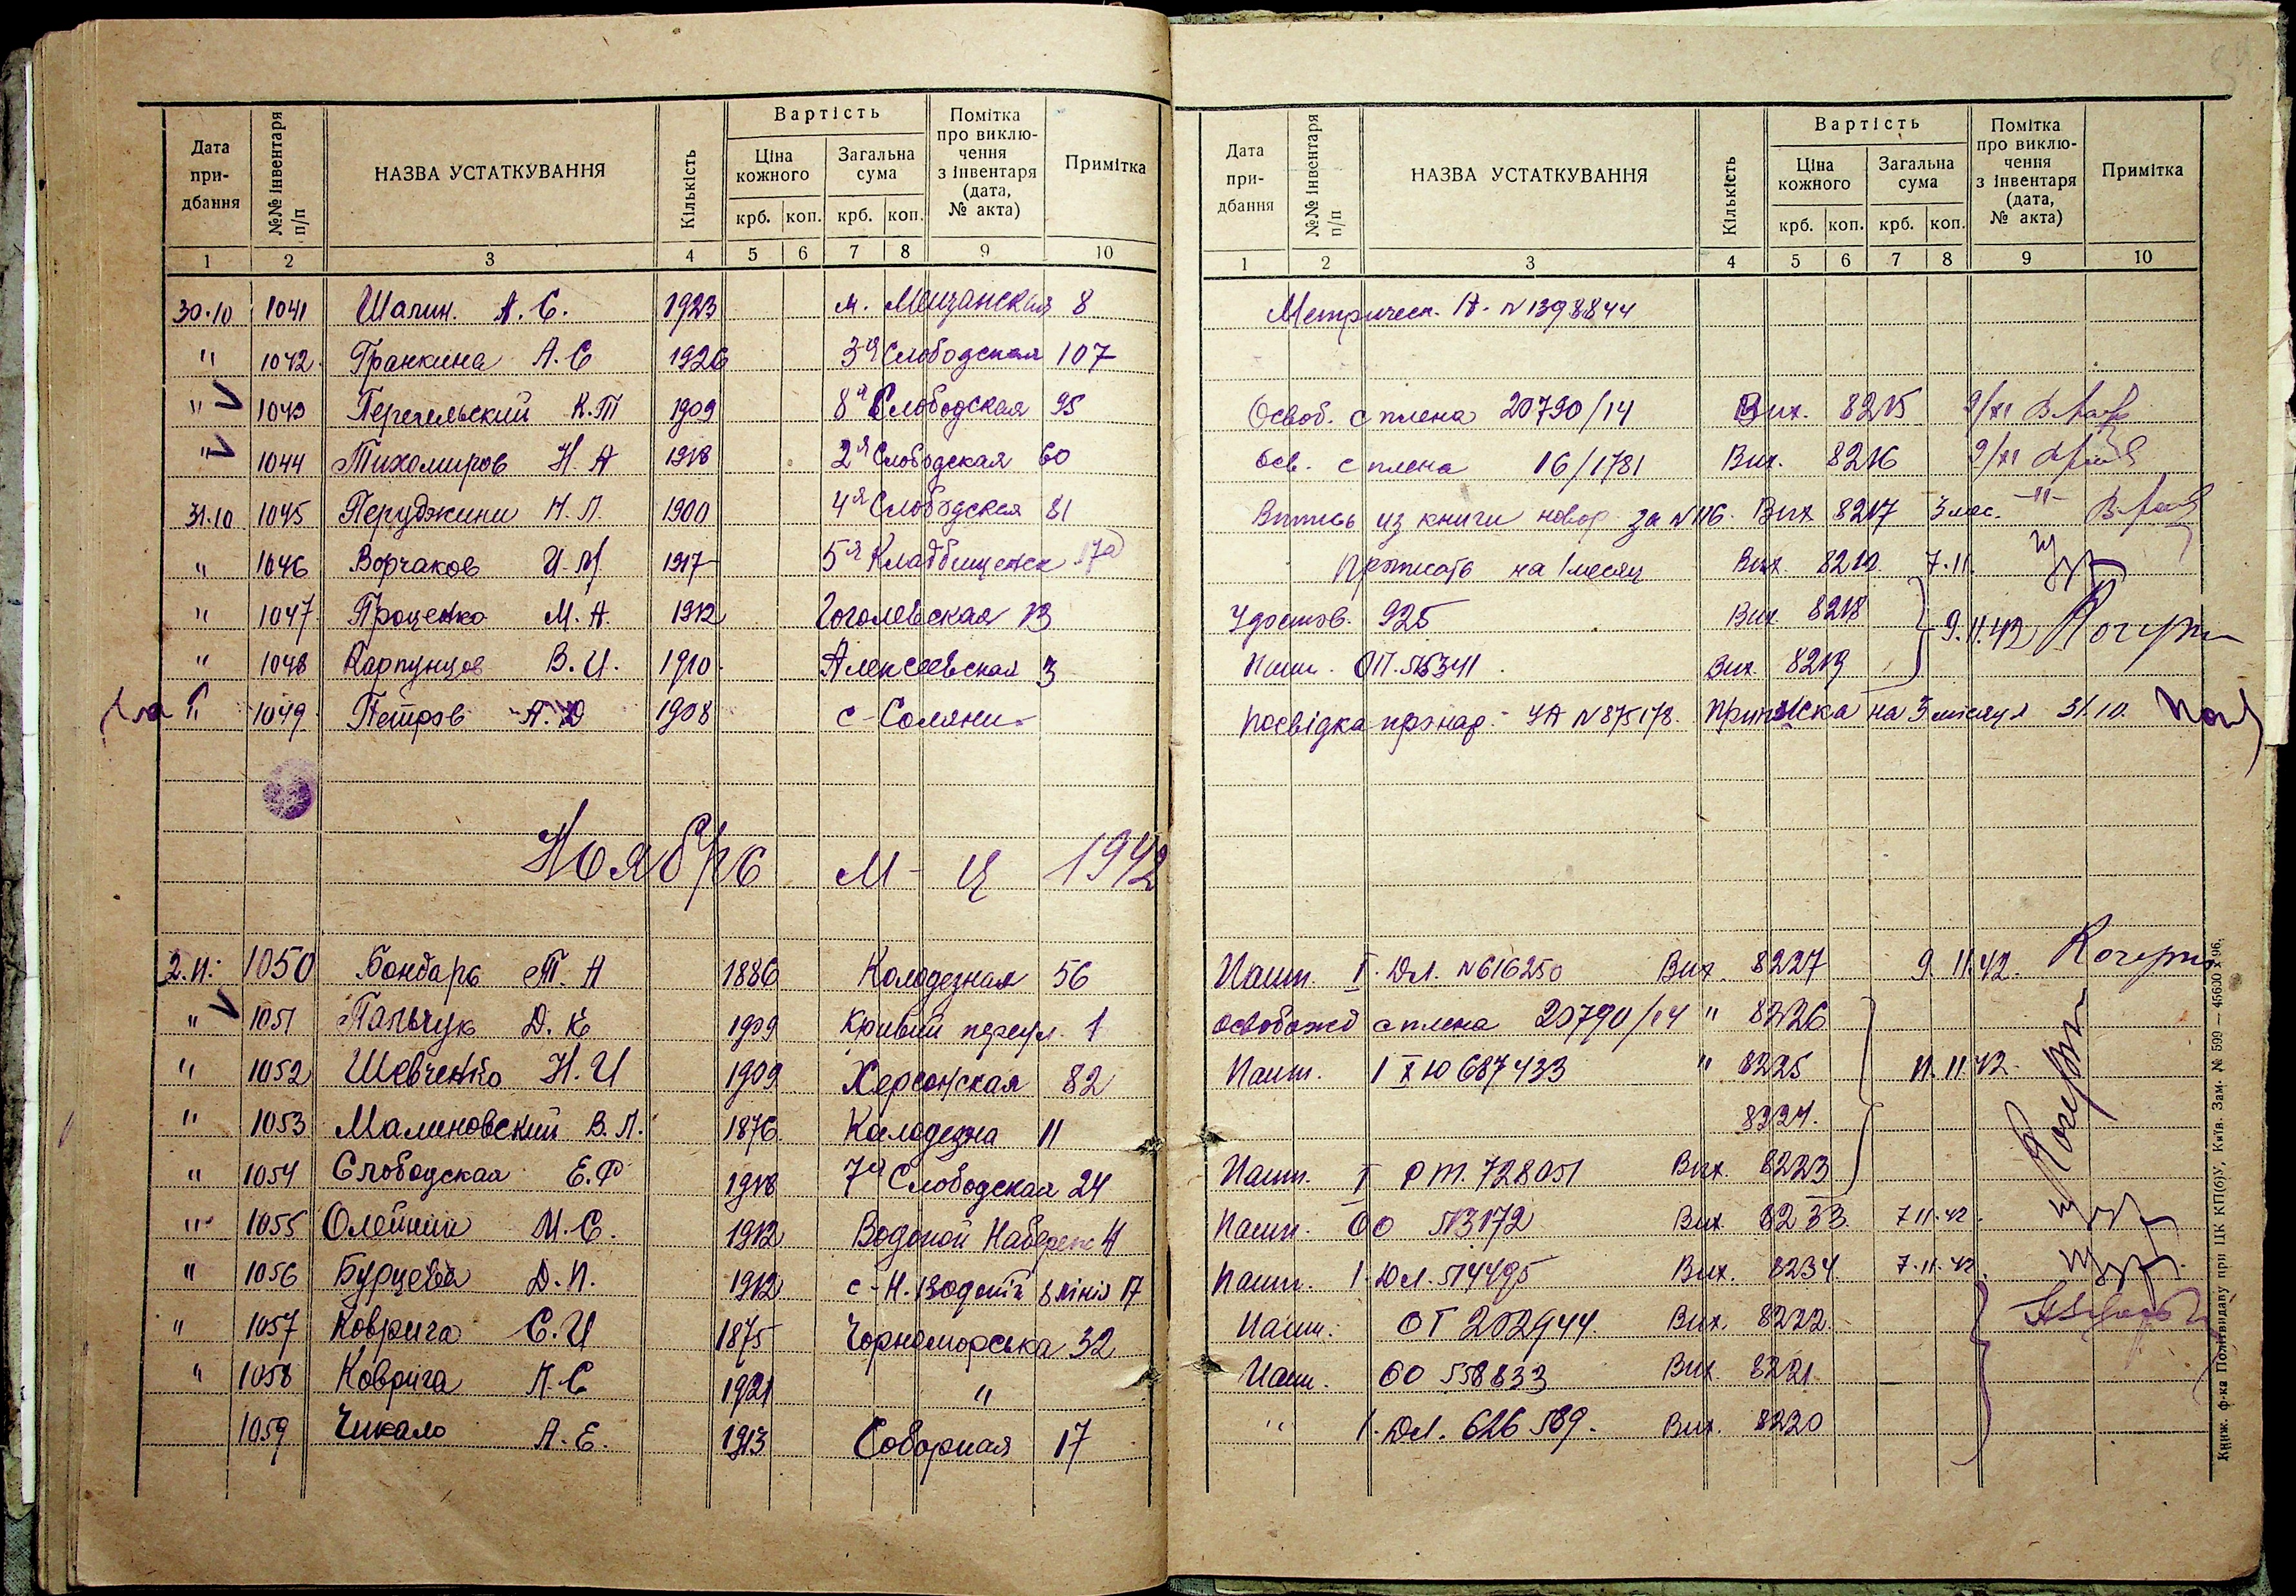 Дата придбання №№ інвентаря п/п НАЗВА УСТАТКУВАННЯ Кількість Вартість Ціна кожного крб. коп. Загальна сума крб. коп. Помітка про виключення з інвентаря (дата, № акта) Примітка
1 2 3 4 5 6 7 8 9 10
30.10 1041 Шапин. А. С. 1923 м. Мещанская 8
" 1042 Гранкина А. С 1926 3я Слободская 107
" 1043 К.Т 1909 8я Слободская 95
" 1044 Тихомиров Н. А 1918 2я Слободская 60
31.10 1045 Перуджини Н. Л. 1900 4я Слободская 81
" 1046 Ворчаков И. М 1917 5я Кладбищенск 17а
" 1047 Проценко М. А. 1912 Гоголевская 13
" 1048 Карпунцов В. И. 1910 Алексеевская 3
" 1049 Петров А. Д 1908 с-Соляни
Ноябрь м-ц 1942
2.11. 1050 Бондарь Т. А 1886 Колодезная 56
" 1051 Пальчук Д. К 1909 Кривий переул. 1
" 1052 Шевченко Н. И 1909 Херсонская 82
" 1053 Малиновский В. Л. 1876 Колодезна 11
" 1054 Слободская Е. Ф 1918 7я Слободская 24
" 1055 Олейник М. С. 1912 Водопой Набереж 4
" 1056 Бурцева Д. П. 1912 с-Н. Водопій 8 лінія 17
" 1057 Коврига С. И 1875 Чорноморська 32
" 1058 Коврига Л. С 1921 "
1059 Чикало А. Е. 1913 Соборная 17
Дата придбання №№ інвентаря п/п НАЗВА УСТАТКУВАННЯ Кількість Вартість Ціна кожного крб. коп. Загальна сума крб. коп. Помітка про виключення з інвентаря (дата, № акта) Примітка
1 2 3 4 5 6 7 8 9 10
Метрическ. N 1398844
Освоб. с плена 20790/14 Вих. 8215 9/XI
Осв. с плена 16/1781 Вих. 8216 9/XI
Випись из книги новор за N 116. Вих 8217 3 мес. -"-
Прописать на 1 месяц Вих 7.11.
Удостов. 925 Вих. 8218 9.11.42
Пашп. ОП. 515341 Вих. 8219
Посвідка про нар. УА N 875178. Приписка на 3 місяця 31.10.
Пашп. I. ЮЛ. N 616250 Вих. 8227 9.11.42.
освобожд с плена 20790/14 " 8226
Пашп. 687433 " 8225 11.11.42.
8224.
Пашп. I РТ. 728051 Вих. 8223
Пашп. 60 513172 Вих. 8233 7.11.42.
Пашп. I. ЮЛ. 514495 Вих. 8234 7.11.42.
Пашп. ОТ 202944. Вих. 8222
Пашп. 60 558833 Вих. 8221.
" I. ЮЛ. 626589. Вих. 8220
Книж. ф-ка Політвидаву при ЦК КП(б)У, Київ. Зам. № 599 — 45600 х 96.